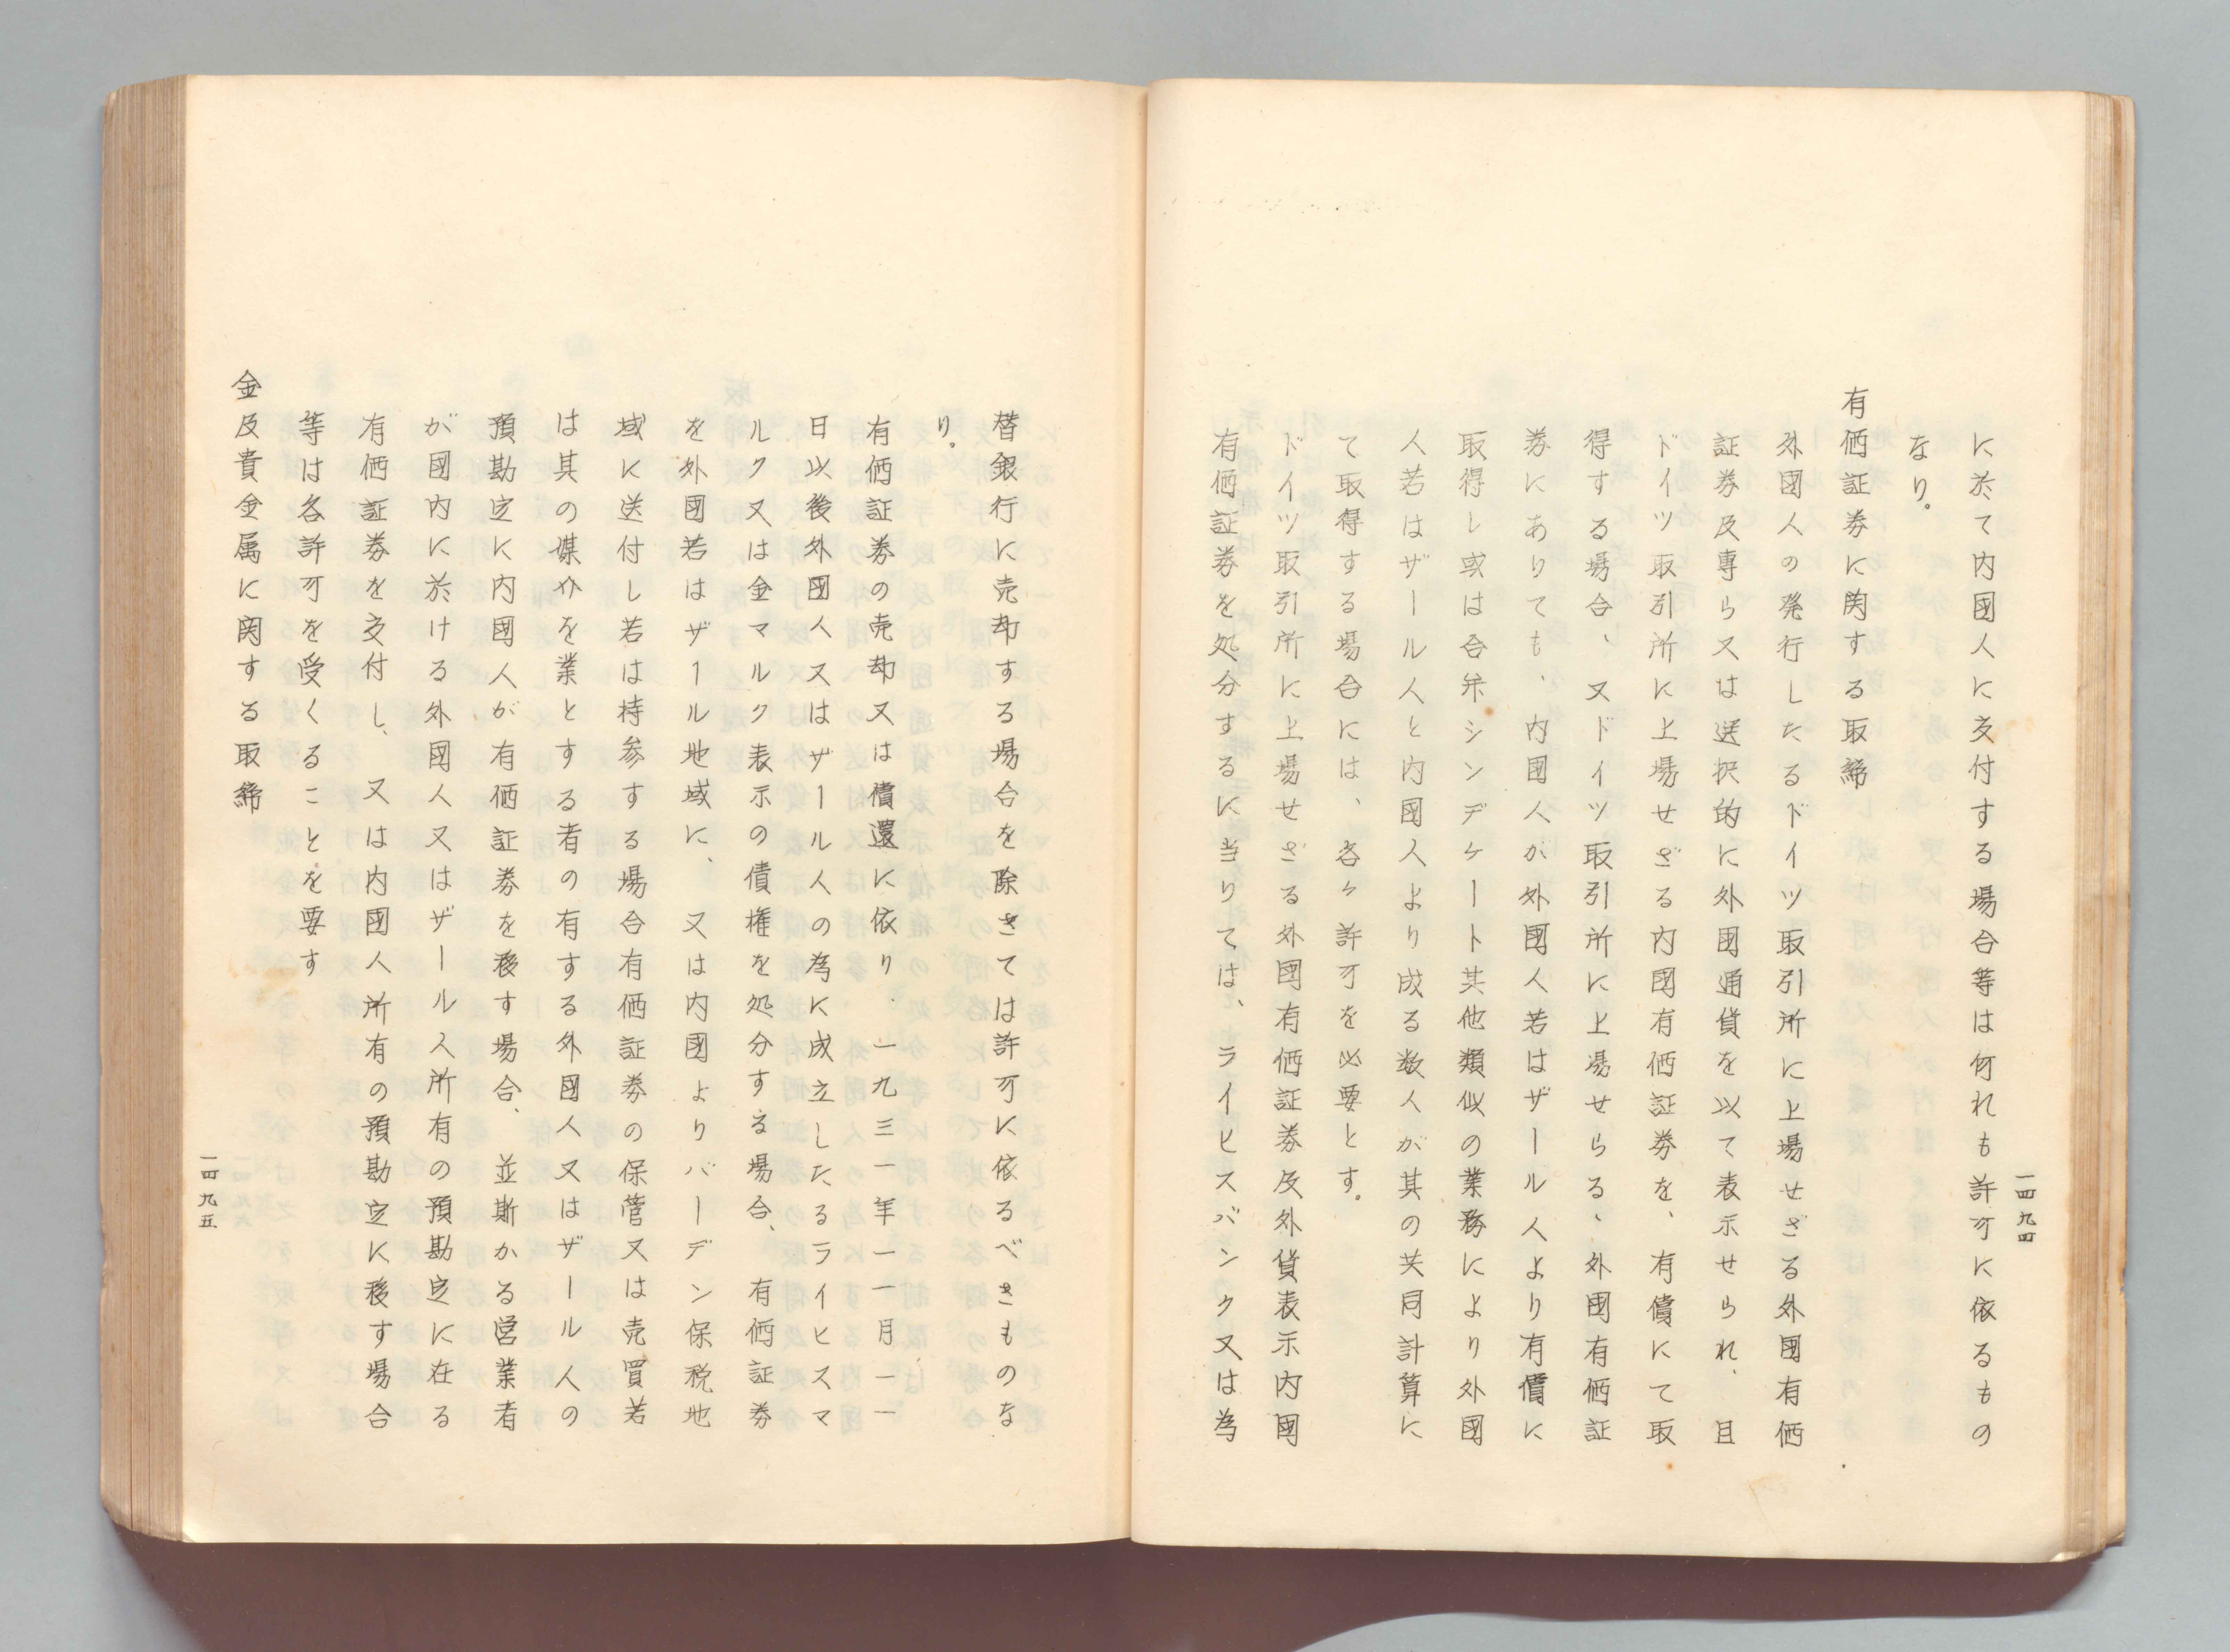 一四九四
に於て内國人に交付する場合等は何れも許可に依るもの
なり。
有価証券に関する取締
外國人の発行したるドイツ取引所に上場せざる外國有価
証券及専ら又は選択的に外國通貨を以て表示せられ、且
ドイツ取引所に上場せざる内國有価証券を、有償にて取
得する場合、又ドイツ取引所に上場せらる、外國有価証
券にありても、内國人が外國人若はザール人より有償に
取得し或は合弁シンヂケート其他類似の業務により外國
人若はザール人と内國人より成る数人が其の共同計算に
て取得する場合には、各々許可を必要とす。
ドイツ取引所に上場せざる外國有価証券及外貨表示内國
有価証券を処分するに当りては、ライヒスバンク又は為
替銀行に売却する場合を除きては許可に依るべきものな
り。
有価証券の売却又は償還に依り、一九三一年一一月一一
日以後外國人又はザール人の為に成立したるライヒスマ
ルク又は金マルク表示の債権を処分する場合、有価証券
を外國若はザール地域に、又は内國よりバーデン保税地
域に送付し若は持参する場合有価証券の保管又は売買若
は其の媒介を業とする者の有する外國人又はザール人の
預勘定に内國人が有価証券を移す場合、並斯かる営業者
が國内に於ける外國人又はザール人所有の預勘定に在る
有価証券を交付し、又は内國人所有の預勘定に移す場合
等は各許可を受くることを要す
金及貴金属に関する取締
一四九五